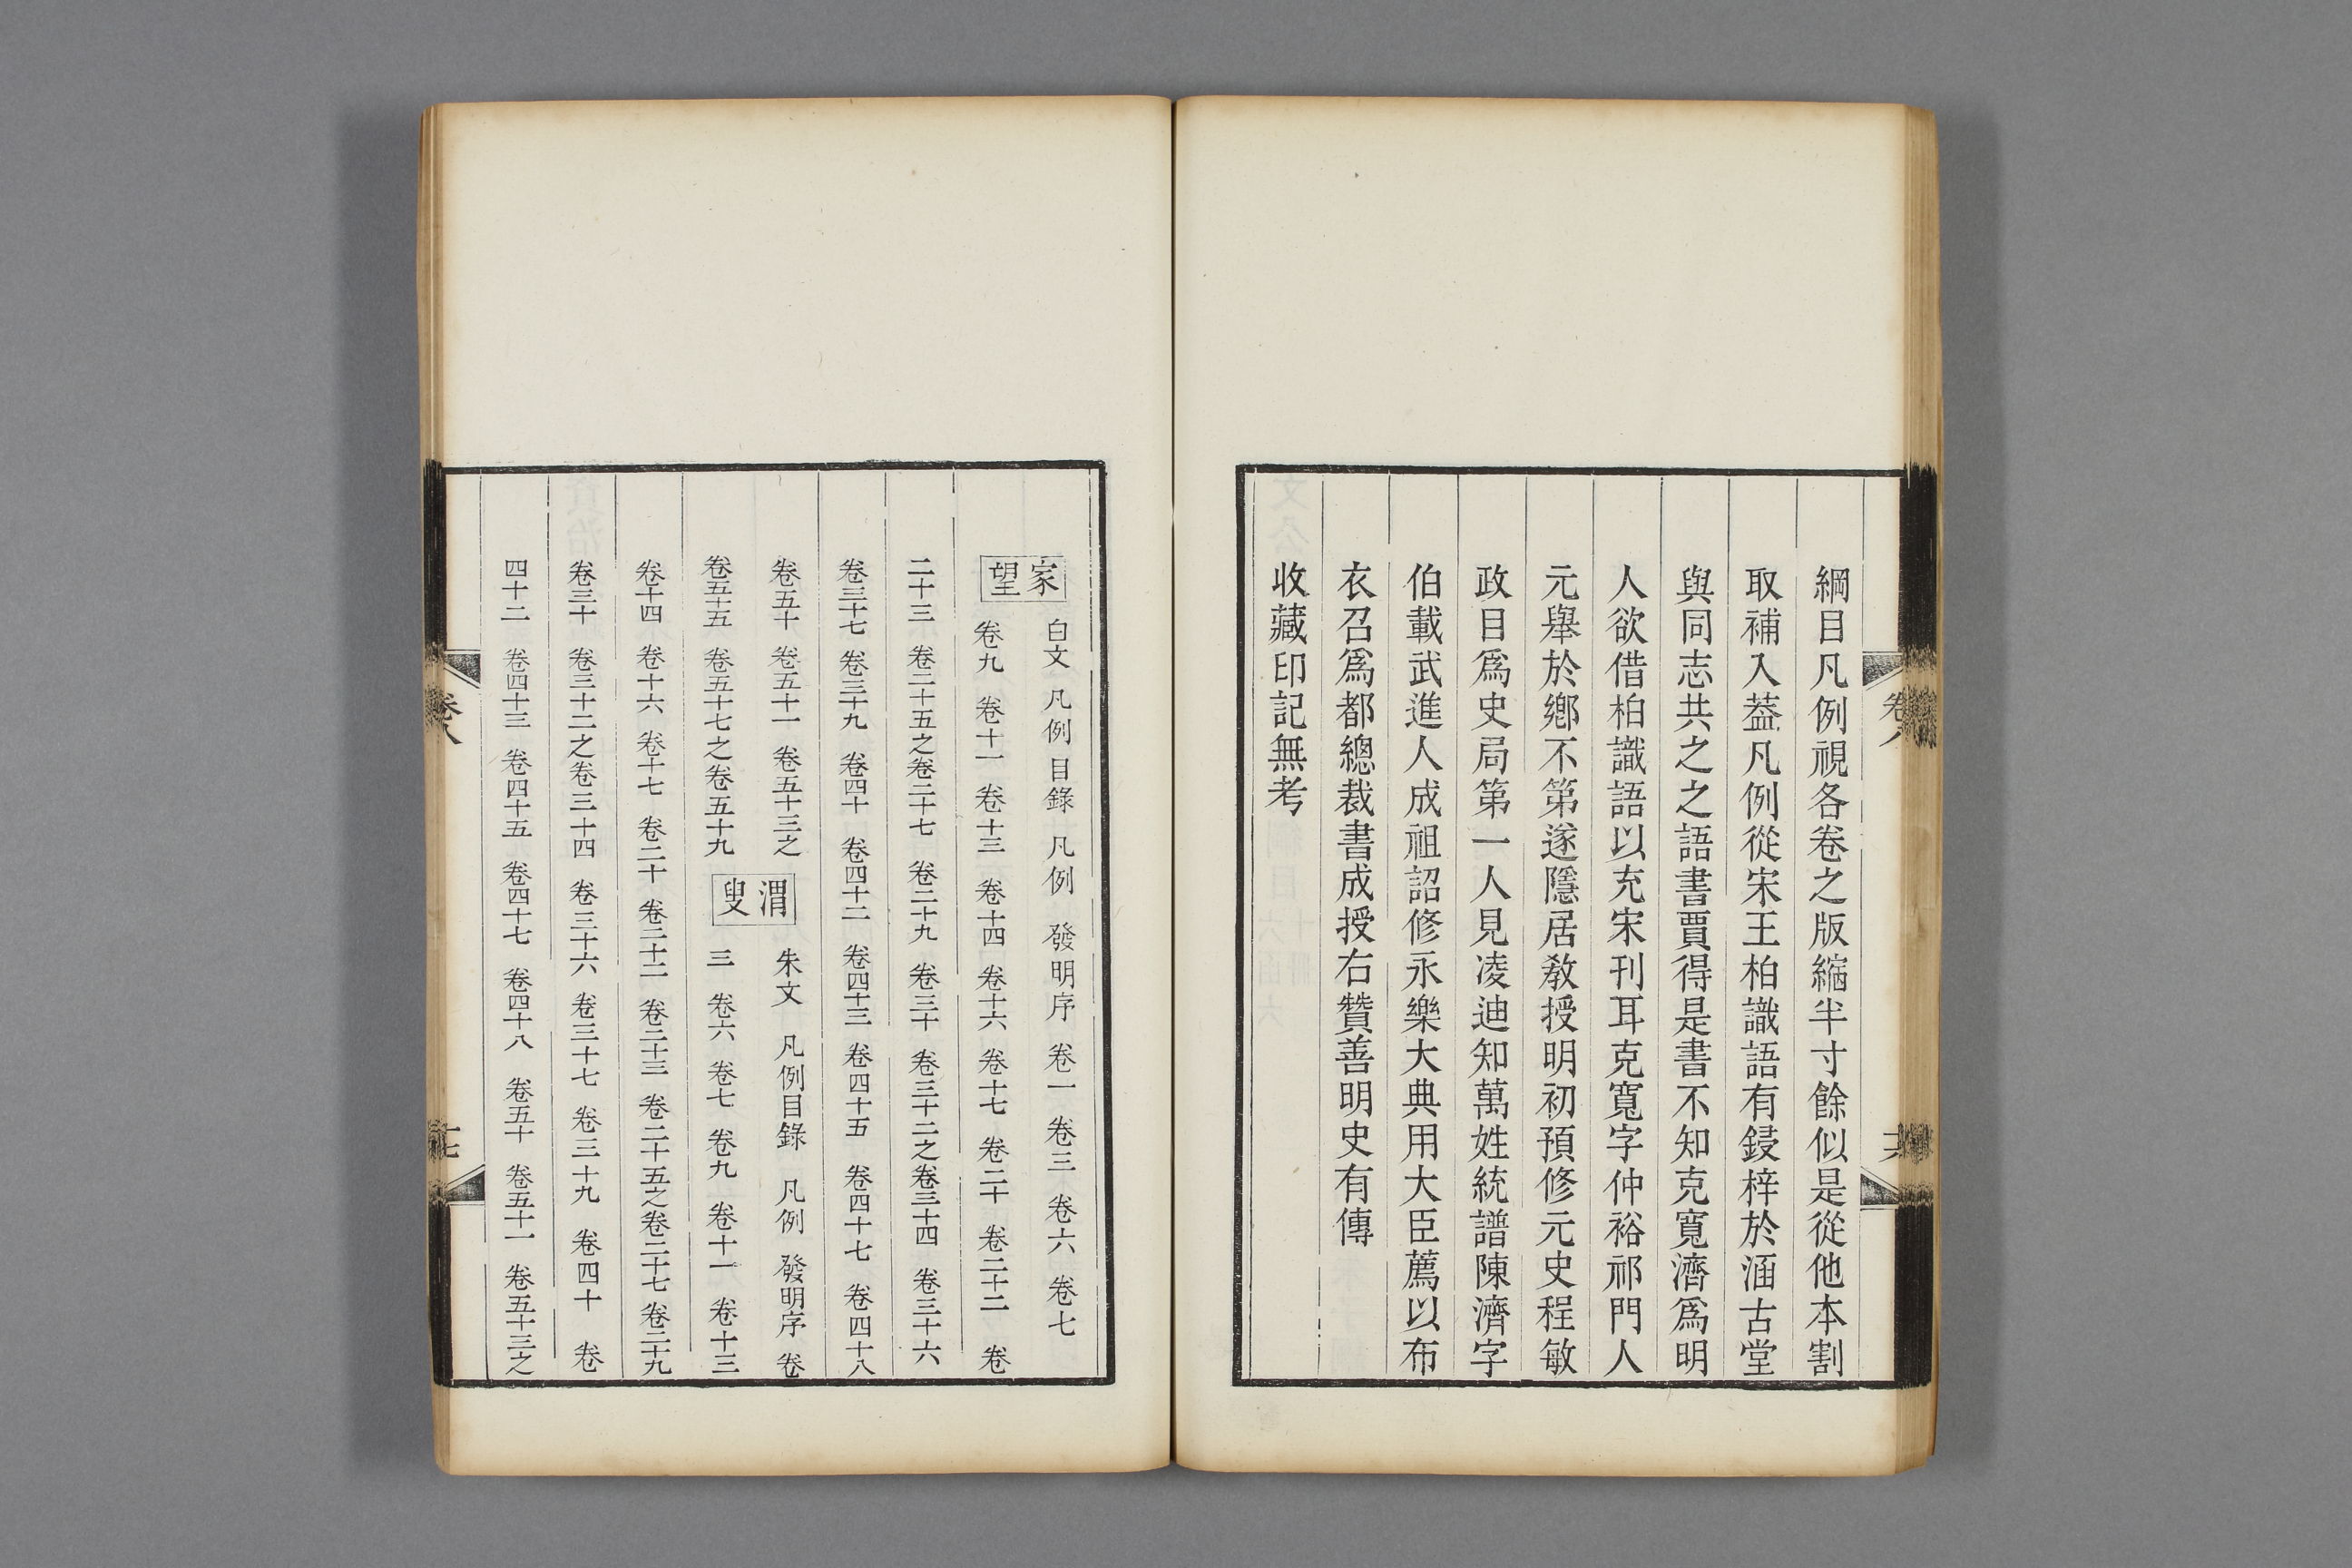 綱目凡例視各卷之版縮半寸餘似是從他本割
取補入葢凡例從宋王柏識語有鋟梓於涵古堂
與同志共之之語書賈得是書不知克寬濟爲明
人欲借柏識語以充宋刊耳克寬字仲裕祁門人
元舉於鄉不第遂隱居敎授明初預修元史程敏
政目爲史局第一人見凌迪知萬姓統譜陳濟字
伯載武進人成祖詔修永樂大典用大臣薦以布
衣召爲都總裁書成授右贊善明史有傳
收藏印記無考
卷八
家望 白文 凡例 目錄 凡例 發明序 卷一 卷三 卷六 卷七
卷九 卷十一 卷十三 卷十四 卷十六 卷十七 卷二十 卷二十二 卷
二十三 卷二十五之卷二十七 卷二十九 卷三十 卷三十二之卷三十四 卷三十六
卷三十七 卷三十九 卷四十 卷四十二 卷四十三 卷四十五 卷四十七 卷四十八
卷五十 卷五十一 卷五十三之
卷五十五 卷五十七之卷五十九
渭叟 朱文 凡例目錄 凡例 發明序 卷
三 卷六 卷七 卷九 卷十一 卷十三
卷十四 卷十六 卷十七 卷二十 卷二十二 卷二十三 卷二十五之卷二十七 卷二十九
卷三十 卷三十二之卷三十四 卷三十六 卷三十七 卷三十九 卷四十 卷
四十二 卷四十三 卷四十五 卷四十七 卷四十八 卷五十 卷五十一 卷五十三之
卷八